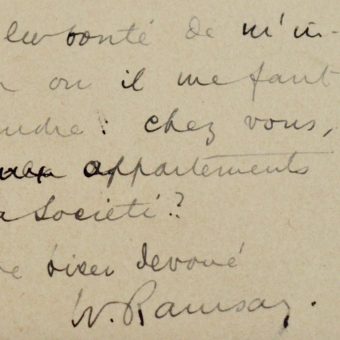 la bonté de m'in-
où il me faut
ndre: chez vous,
aux appartements
a Societé?
re bien devoué
W. Ramsay.